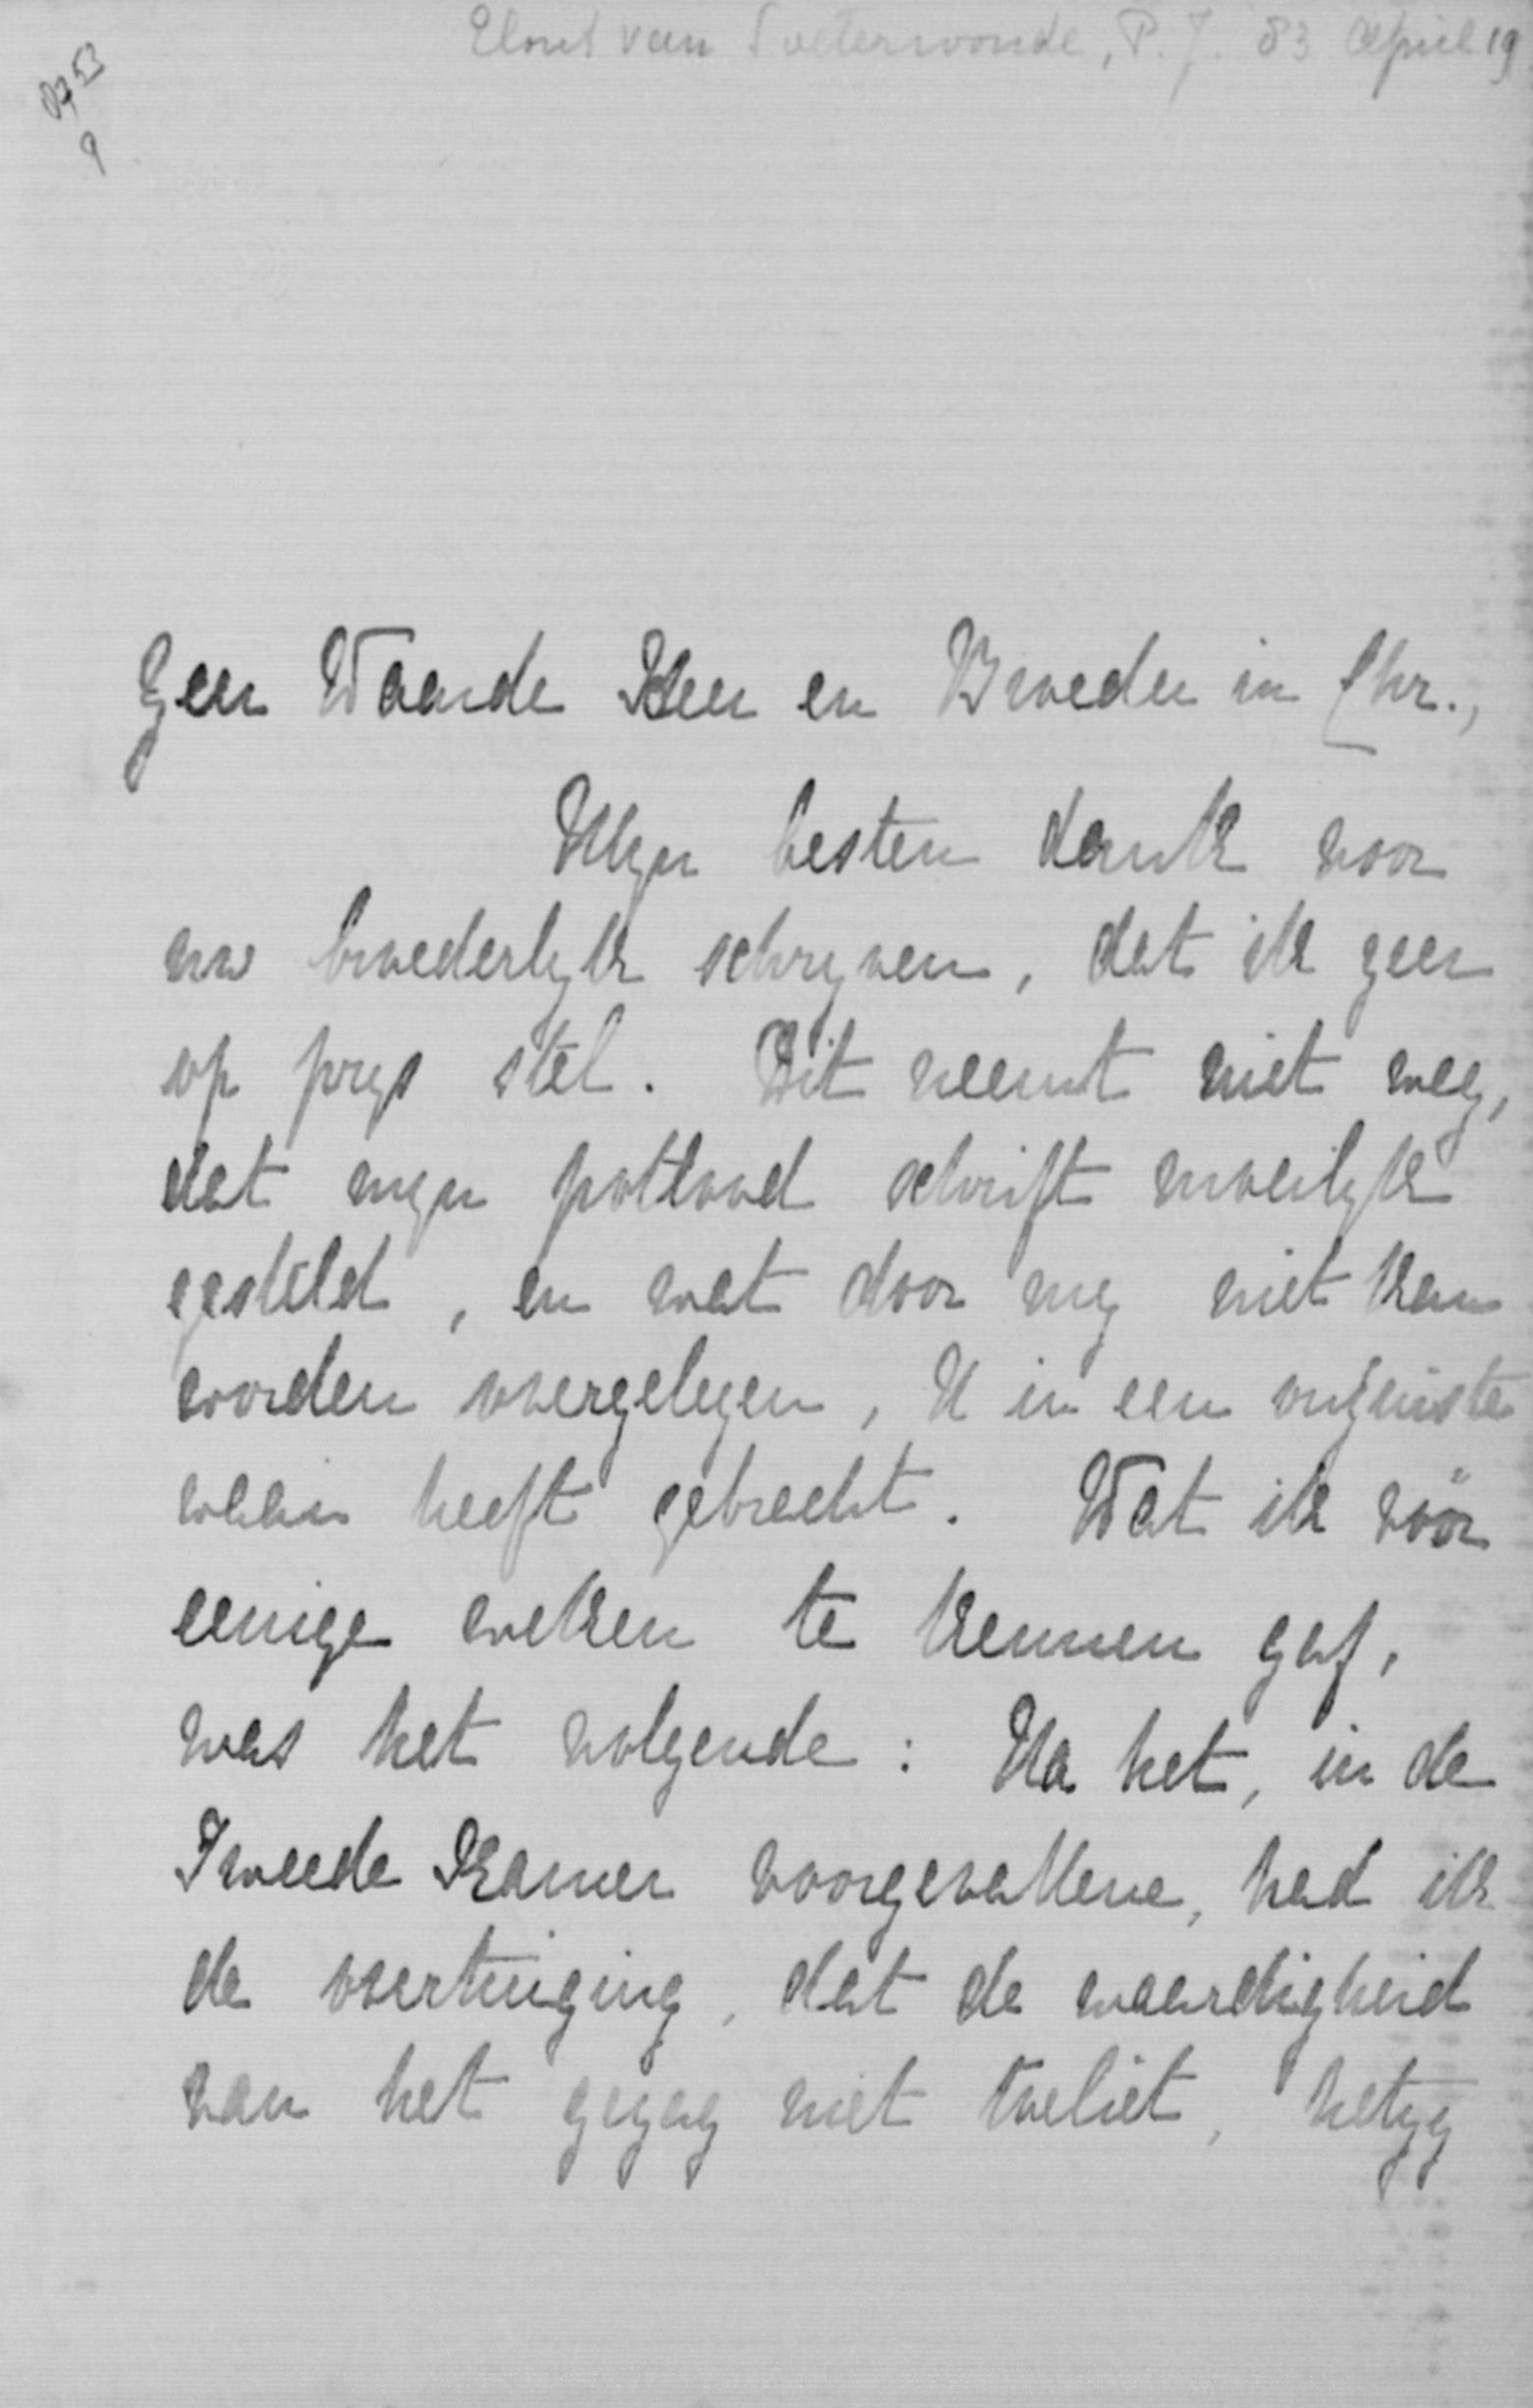 Elout van Soeterwoude, P. J. 83 April 19
Zeer Waarde Heer en Broeder in Chr.,
Mijn besten dank voor
uw broederlijk schrijven, dat ik zeer
op prijs stel. Dit neemt niet weg,
dat mijn potlood schrift moeilijk
gesteld, en wat door mij niet kan
worden overgelegen, U in een onjuiste
waan heeft gebracht. Wat ik vóór
eenige weken te kennen gaf,
was het volgende: Na het, in de
Tweede Kamer voorgevallene, had ik
de overtuiging, dat de waardigheid
van het gezag niet toeliet, hetzij